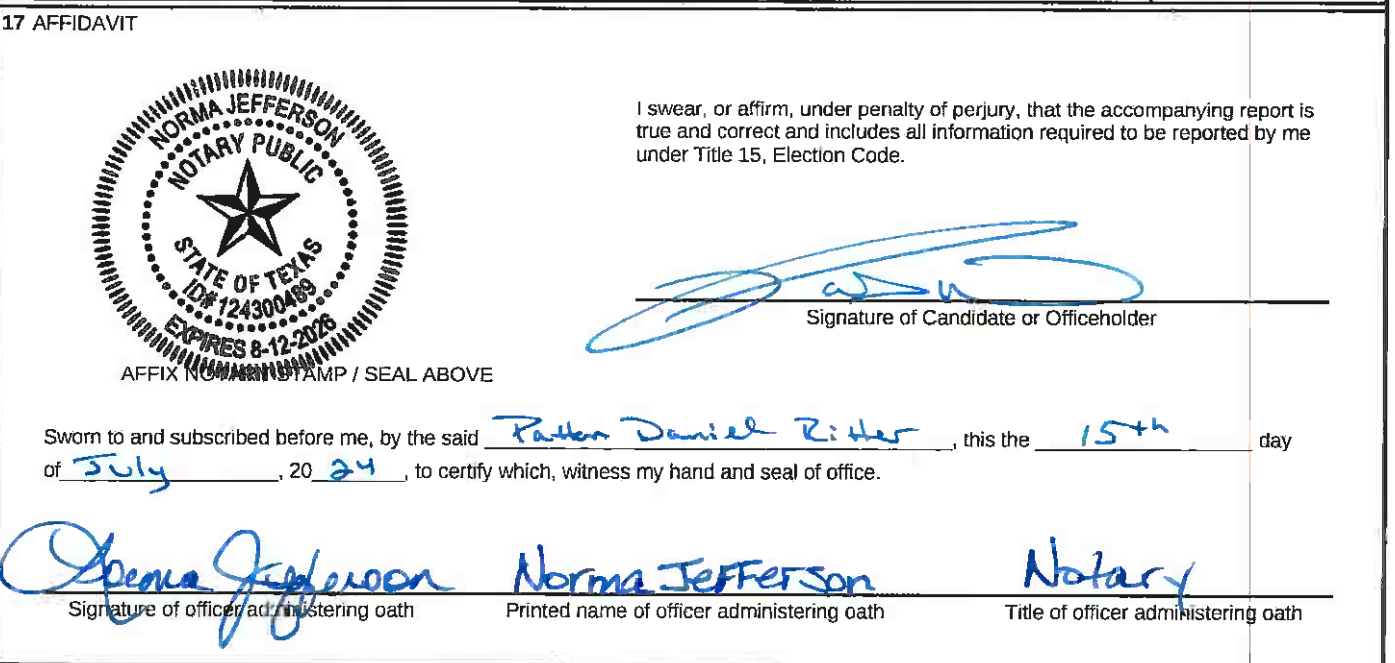 17 AFFIDAVIT
NORMA JEFFERSON
NOTARY PUBLIC
STATE OF TEXAS
ID# 124300489
EXPIRES 8-12-2026
I swear, or affirm, under penalty of perjury, that the accompanying report is
true and correct and includes all information required to be reported by me
under Title 15, Election Code.
Signature of Candidate or Officeholder
AFFIX NOTARY STAMP / SEAL ABOVE
Sworn to and subscribed before me, by the said Patton Daniel Ritter, this the 15th day
of July, 20 24, to certify which, witness my hand and seal of office.
Norma Jefferson Norma Jefferson Notary
Signature of officer administering oath Printed name of officer administering oath Title of officer administering oath